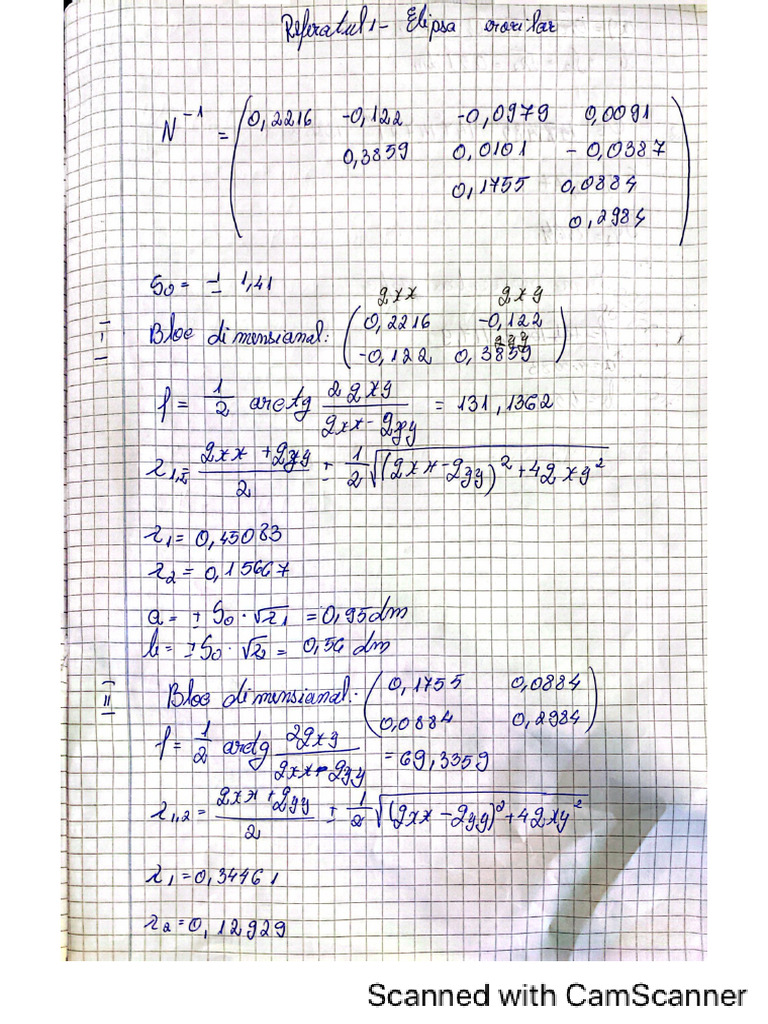 Referatul 1 - Elipsa erorilor
N⁻¹ = (0,2216 -0,122 -0,0979 0,0091
0,3859 0,0101 -0,0387
0,1755 0,0884
0,2984)
S₀ = ± 1,41
qxx qxy
I Bloc dimensional: (0,2216 -0,122
qyy
-0,122 0,3859)
f = 1/2 arctg 2qxy/(qxx - qyy) = 131,1362
λ₁,₂ = (qxx + qyy)/2 ± 1/2 √((qxx - qyy)² + 4qxy²)
λ₁ = 0,45083
λ₂ = 0,15667
a = ± S₀ · √λ₁ = 0,95 dm
b = ± S₀ · √λ₂ = 0,56 dm
II Bloc dimensional: (0,1755 0,0884
0,0884 0,2984)
f = 1/2 arctg 2qxy/(qxx - qyy) = 69,3359
λ₁,₂ = (qxx + qyy)/2 ± 1/2 √((qxx - qyy)² + 4qxy²)
λ₁ = 0,34461
λ₂ = 0,12929
Scanned with CamScanner